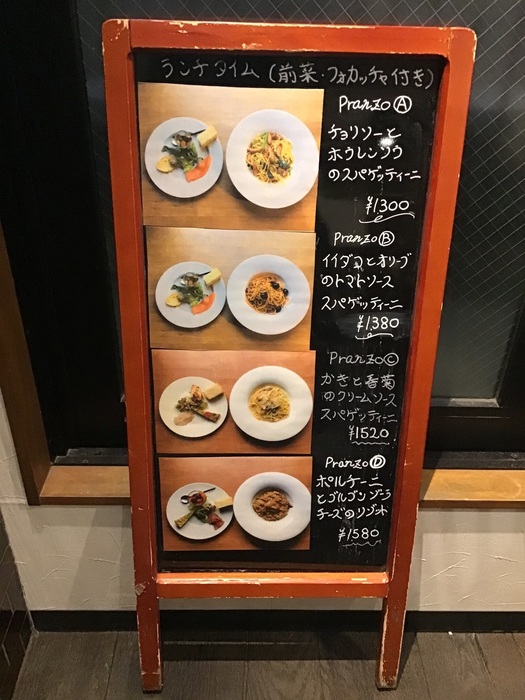 ランチタイム (前菜・フォカッチャ付き)
Pranzo Ⓐ
チョリソーと
ホウレンソウ
のスパゲッティーニ
¥1300
Pranzo Ⓑ
イイダコとオリーブ
のトマトソース
スパゲッティーニ
¥1380
Pranzo Ⓒ
かきと春菊
のクリームソース
スパゲッティーニ
¥1520
Pranzo Ⓓ
ポルチーニ
とゴルゴンゾーラ
チーズのリゾット
¥1580